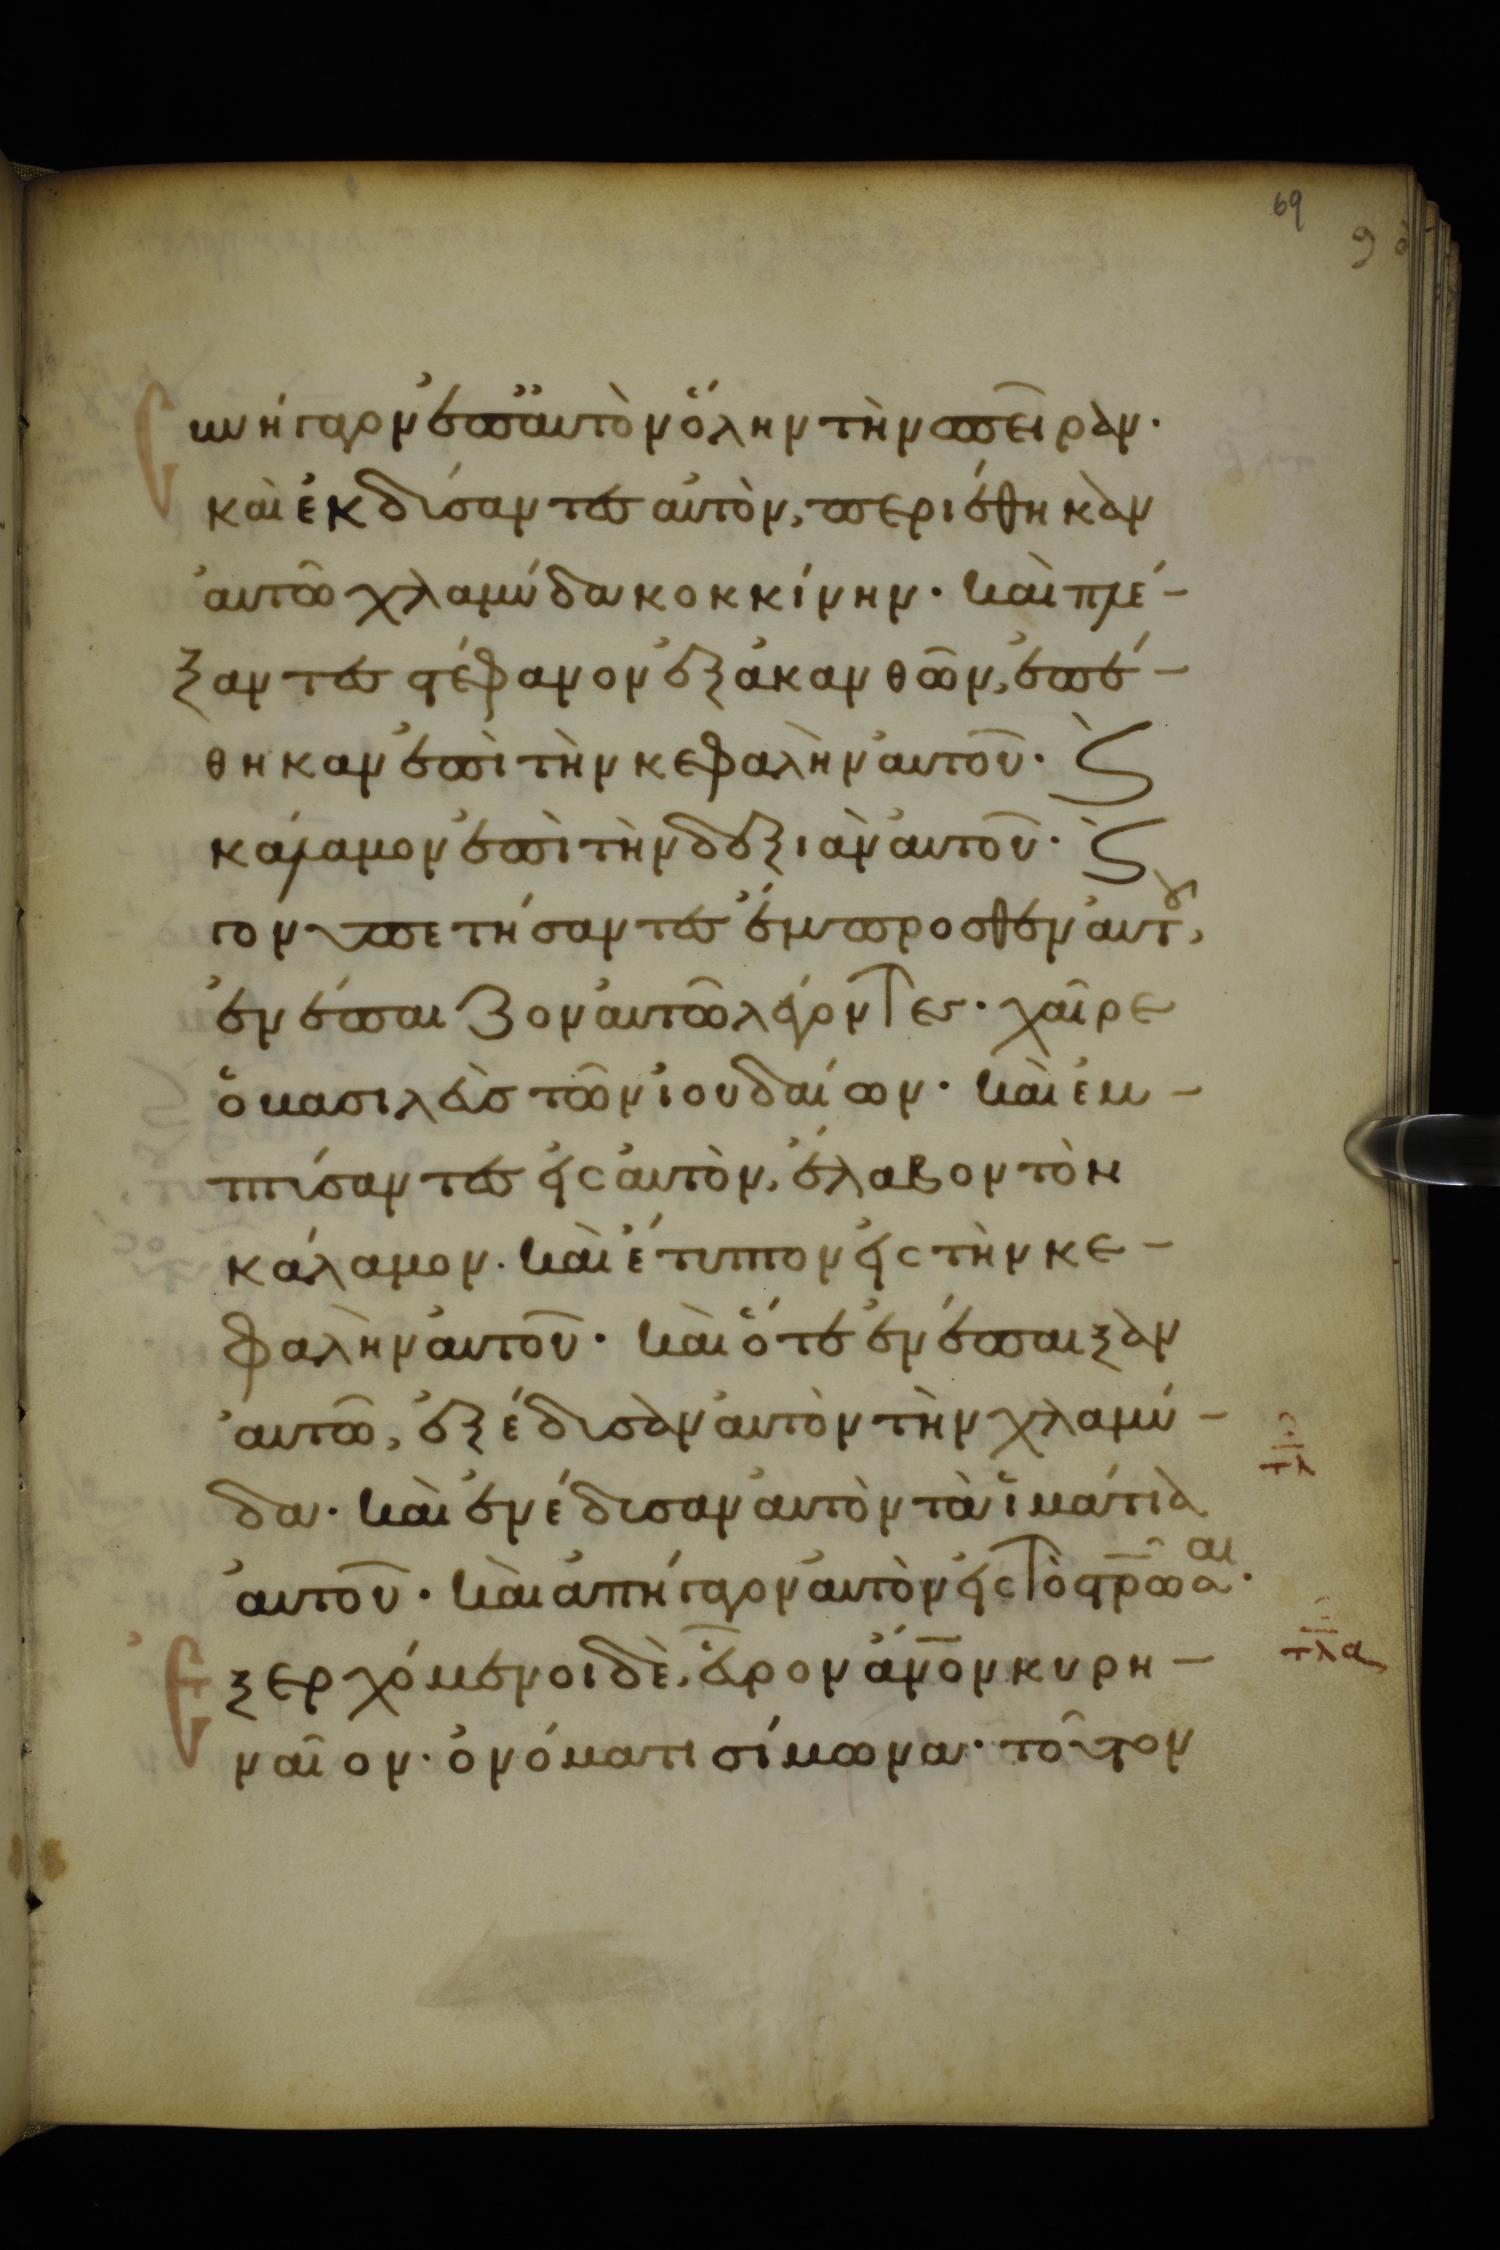 69
9
συνήγαγον ἐπ' αὐτὸν ὅλην τὴν σπεῖραν·
καὶ ἐκδύσαντες αὐτὸν, περιέθηκαν
αὐτῶ χλαμύδα κοκκίνην· καὶ πλέ-
ξαντες στέφανον ἐξ ἀκανθῶν, ἐπέ-
θηκαν ἐπὶ τὴν κεφαλὴν αὐτοῦ· ϛ̀
κάλαμον ἐπὶ τὴν δεξιὰν αὐτοῦ· ϛ̀
γονυπετήσαντες ἔμπροσθεν αὐτου,
ἐνέπαιζον αὐτῶ λέγοντες· χαῖρε
ὁ βασιλεὺς τῶν ἰουδαίων· καὶ ἐμ-
πτύσαντες εἰς αὐτὸν, ἔλαβον τὸν
κάλαμον· καὶ ἔτυπτον εἰς τὴν κε-
φαλὴν αὐτοῦ· καὶ ὅτε ἐνέπαιξαν
αὐτῶ, ἐξέδυσαν αὐτὸν τὴν χλαμύ-
δα· καὶ ἐνέδυσαν αὐτὸν τὰ ἱμάτια
αὐτοῦ· καὶ ἀπήγαγον αὐτὸν εἰς τὸ στρῶσαι·
Ἐξερχόμενοι δὲ, εὗρον ἄνον κυρη-
ναῖον· ὀνόματι σίμωνα· τοῦτον
τλ
τλα